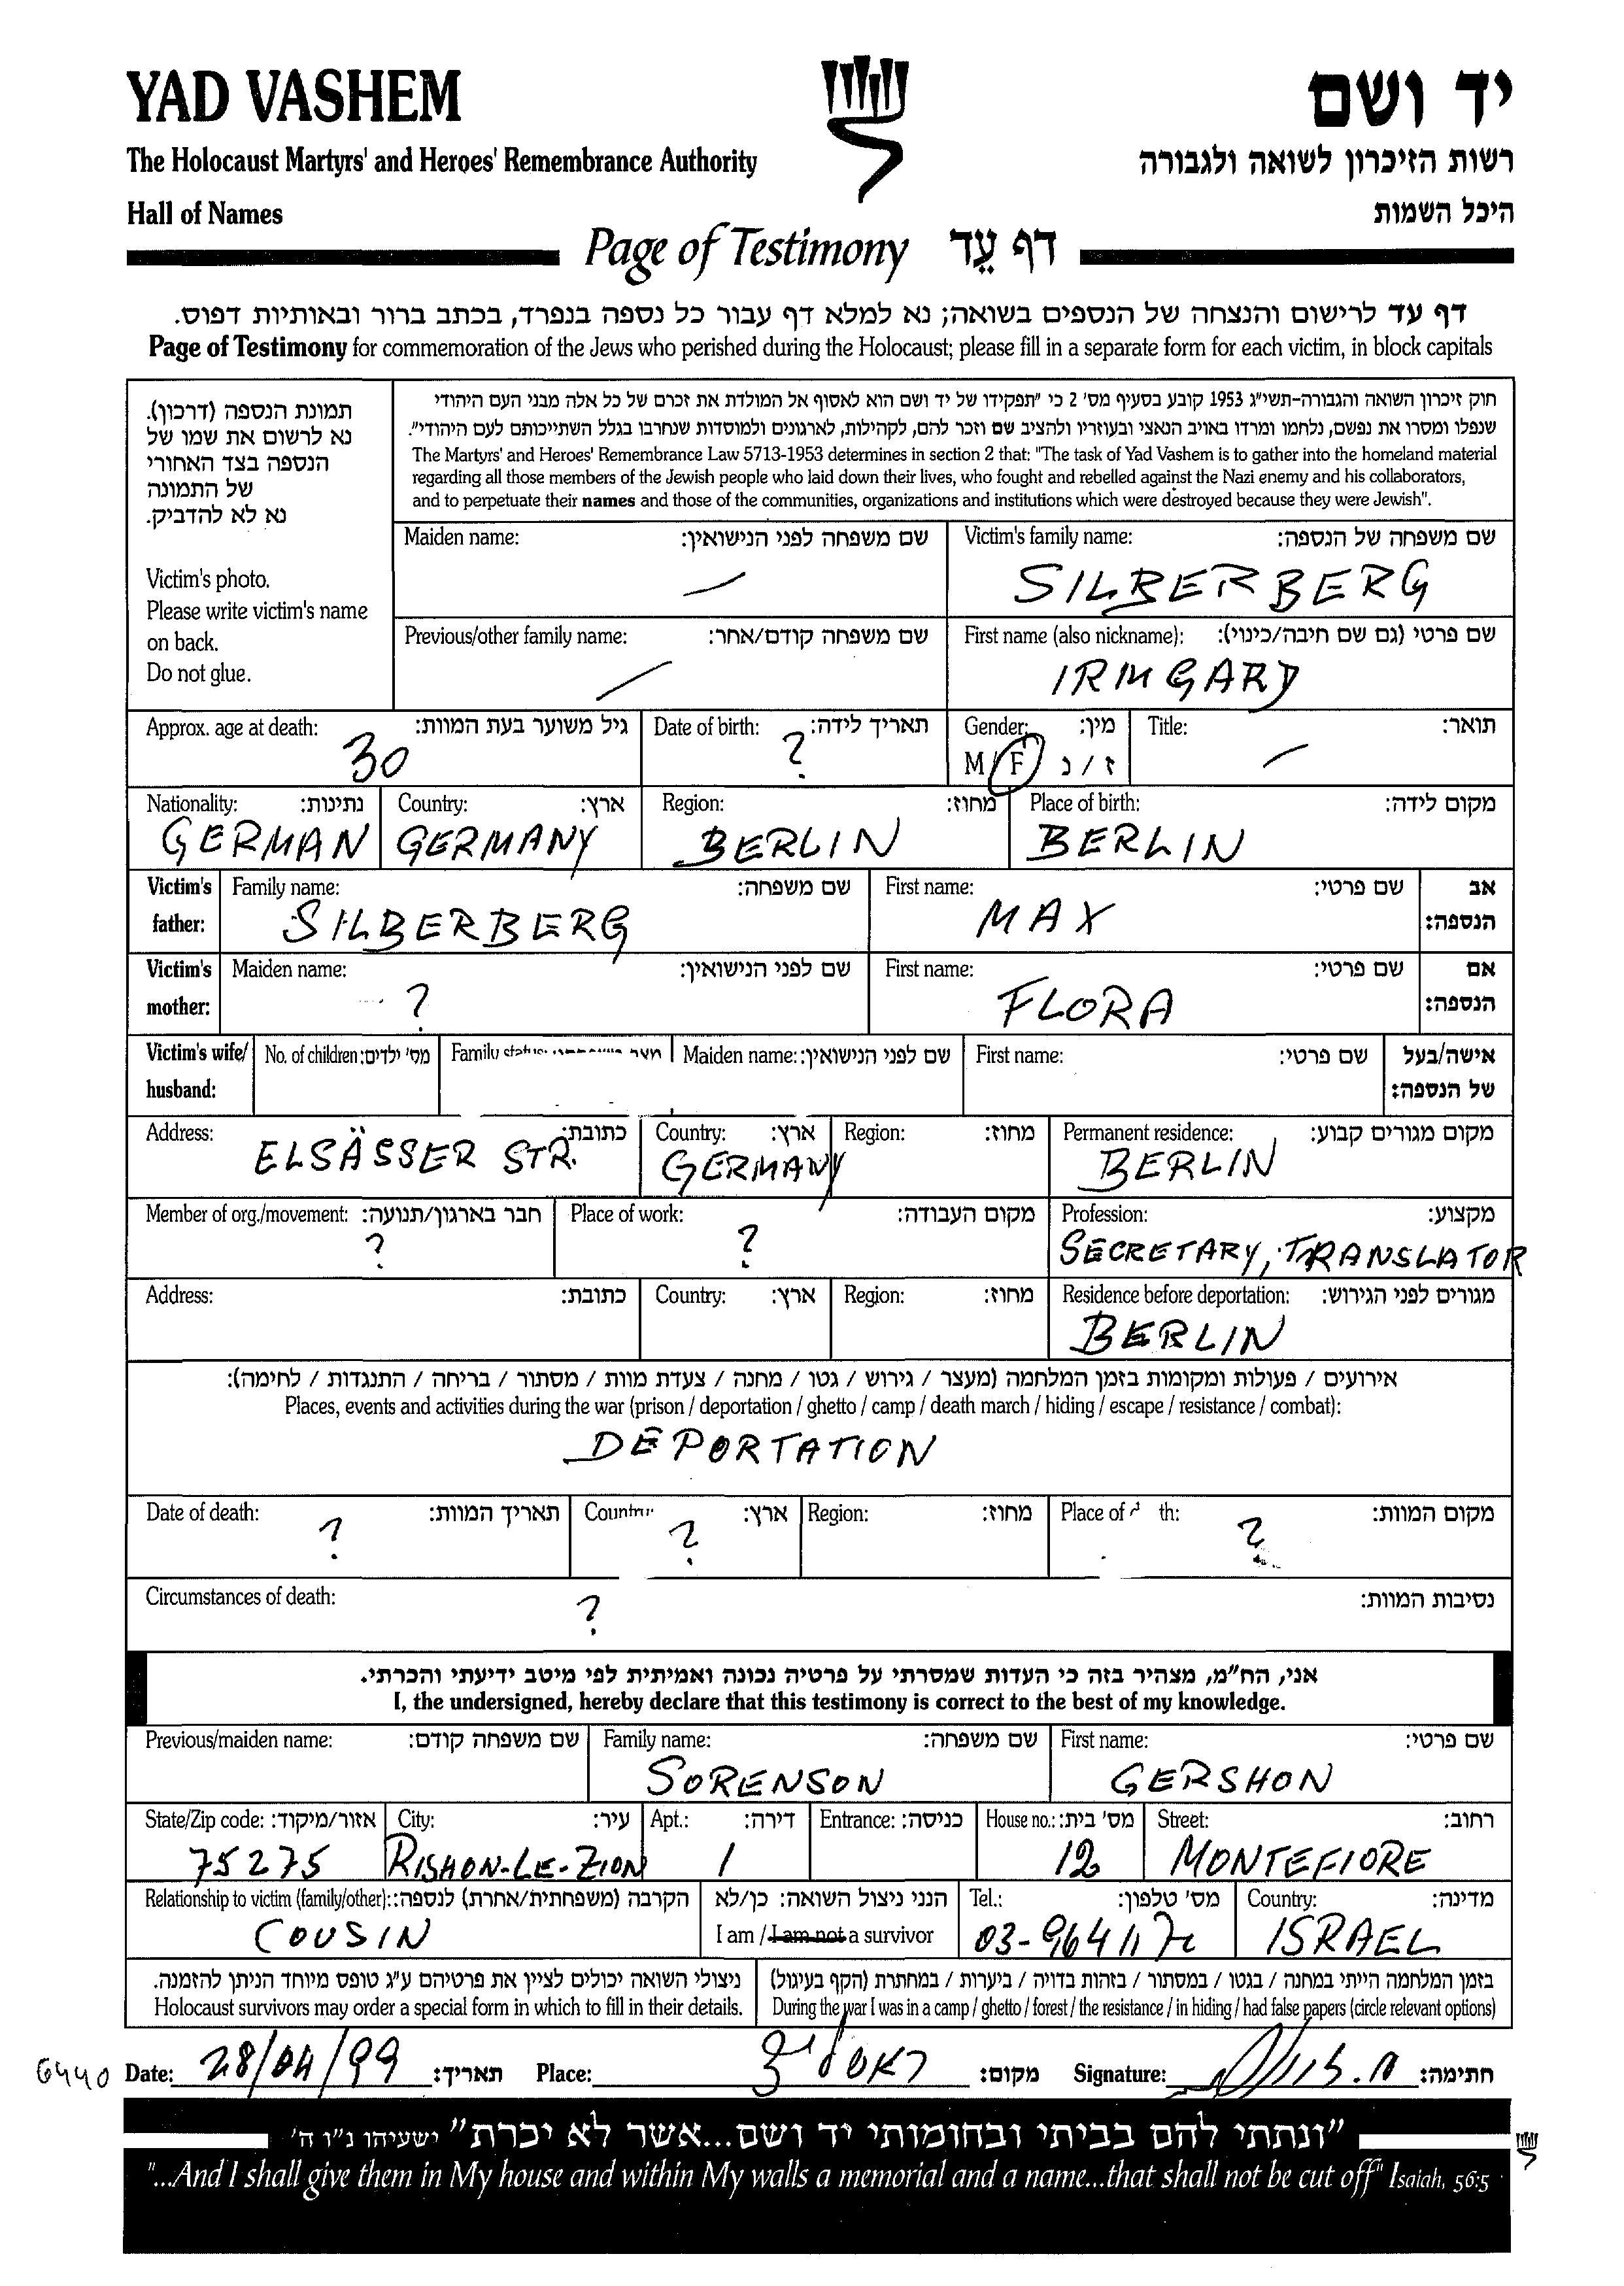 YAD VASHEM
יד ושם
The Holocaust Martyrs' and Heroes' Remembrance Authority
רשות הזיכרון לשואה ולגבורה
Hall of Names
היכל השמות
Page of Testimony דף עֵד
דף עד לרישום והנצחה של הנספים בשואה; נא למלא דף עבור כל נספה בנפרד, בכתב ברור ובאותיות דפוס.
Page of Testimony for commemoration of the Jews who perished during the Holocaust; please fill in a separate form for each victim, in block capitals
תמונת הנספה (דרכון).
נא לרשום את שמו של
הנספה בצד האחורי
של התמונה
נא לא להדביק.
Victim's photo.
Please write victim's name
on back.
Do not glue.
חוק זיכרון השואה והגבורה-תשי"ג 1953 קובע בסעיף מס' 2 כי "תפקידו של יד ושם הוא לאסוף אל המולדת את זכרם של כל אלה מבני העם היהודי
שנפלו ומסרו את נפשם, נלחמו ומרדו באויב הנאצי ובעוזריו ולהציב שם וזכר להם, לקהילות, לארגונים ולמוסדות שנחרבו בגלל השתייכותם לעם היהודי".
The Martyrs' and Heroes' Remembrance Law 5713-1953 determines in section 2 that: "The task of Yad Vashem is to gather into the homeland material
regarding all those members of the Jewish people who laid down their lives, who fought and rebelled against the Nazi enemy and his collaborators,
and to perpetuate their names and those of the communities, organizations and institutions which were destroyed because they were Jewish".
Maiden name: שם משפחה לפני הנישואין:
—
Victim's family name: שם משפחה של הנספה:
SILBERBERG
Previous/other family name: שם משפחה קודם/אחר:
—
First name (also nickname): שם פרטי (גם שם חיבה/כינוי):
IRMGARD
Approx. age at death: גיל משוער בעת המוות:
30
Date of birth: תאריך לידה:
?
Gender: מין:
M / F ז / נ
Title: תואר:
—
Nationality: נתינות:
GERMAN
Country: ארץ:
GERMANY
Region: מחוז:
BERLIN
Place of birth: מקום לידה:
BERLIN
Victim's father:
Family name: שם משפחה:
SILBERBERG
First name: שם פרטי:
MAX
אב הנספה:
Victim's mother:
Maiden name: שם לפני הנישואין:
?
First name: שם פרטי:
FLORA
אם הנספה:
Victim's wife/ husband:
No. of children: מס' ילדים:
Family
Maiden name: שם לפני הנישואין:
First name: שם פרטי:
אישה/בעל של הנספה:
Address: כתובת:
ELSÄSSER STR.
Country: ארץ:
GERMANY
Region: מחוז:
Permanent residence: מקום מגורים קבוע:
BERLIN
Member of org./movement: חבר בארגון/תנועה:
?
Place of work: מקום העבודה:
?
Profession: מקצוע:
SECRETARY, TRANSLATOR
Address: כתובת:
Country: ארץ:
Region: מחוז:
Residence before deportation: מגורים לפני הגירוש:
BERLIN
אירועים / פעולות ומקומות בזמן המלחמה (מעצר / גירוש / גטו / מחנה / צעדת מוות / מסתור / בריחה / התנגדות / לחימה):
Places, events and activities during the war (prison / deportation / ghetto / camp / death march / hiding / escape / resistance / combat):
DEPORTATION
Date of death: תאריך המוות:
?
Country: ארץ:
?
Region: מחוז:
Place of th: מקום המוות:
?
Circumstances of death: נסיבות המוות:
?
אני, הח"מ, מצהיר בזה כי העדות שמסרתי על פרטיה נכונה ואמיתית לפי מיטב ידיעתי והכרתי.
I, the undersigned, hereby declare that this testimony is correct to the best of my knowledge.
Previous/maiden name: שם משפחה קודם:
Family name: שם משפחה:
SORENSON
First name: שם פרטי:
GERSHON
State/Zip code: אזור/מיקוד:
75275
City: עיר:
RISHON-LE-ZION
Apt.: דירה:
1
Entrance: כניסה:
House no.: מס' בית:
12
Street: רחוב:
MONTEFIORE
Relationship to victim (family/other): הקרבה (משפחתית/אחרת) לנספה:
COUSIN
הנני ניצול השואה: כן/לא
I am / I am not a survivor
Tel.: מס' טלפון:
Country: מדינה:
ISRAEL
ניצולי השואה יכולים לציין את פרטיהם ע"ג טופס מיוחד הניתן להזמנה.
Holocaust survivors may order a special form in which to fill in their details.
בזמן המלחמה הייתי במחנה / בגטו / במסתור / בזהות בדויה / ביערות / במחתרת (הקף בעיגול)
During the war I was in a camp / ghetto / forest / the resistance / in hiding / had false papers (circle relevant options)
6440
Date: 28/04/99 תאריך:
Place: ראשל"צ מקום:
Signature: חתימה:
"ונתתי להם בביתי ובחומותי יד ושם...אשר לא יכרת" ישעיהו נ"ו ה'
"...And I shall give them in My house and within My walls a memorial and a name...that shall not be cut off" Isaiah, 56:5